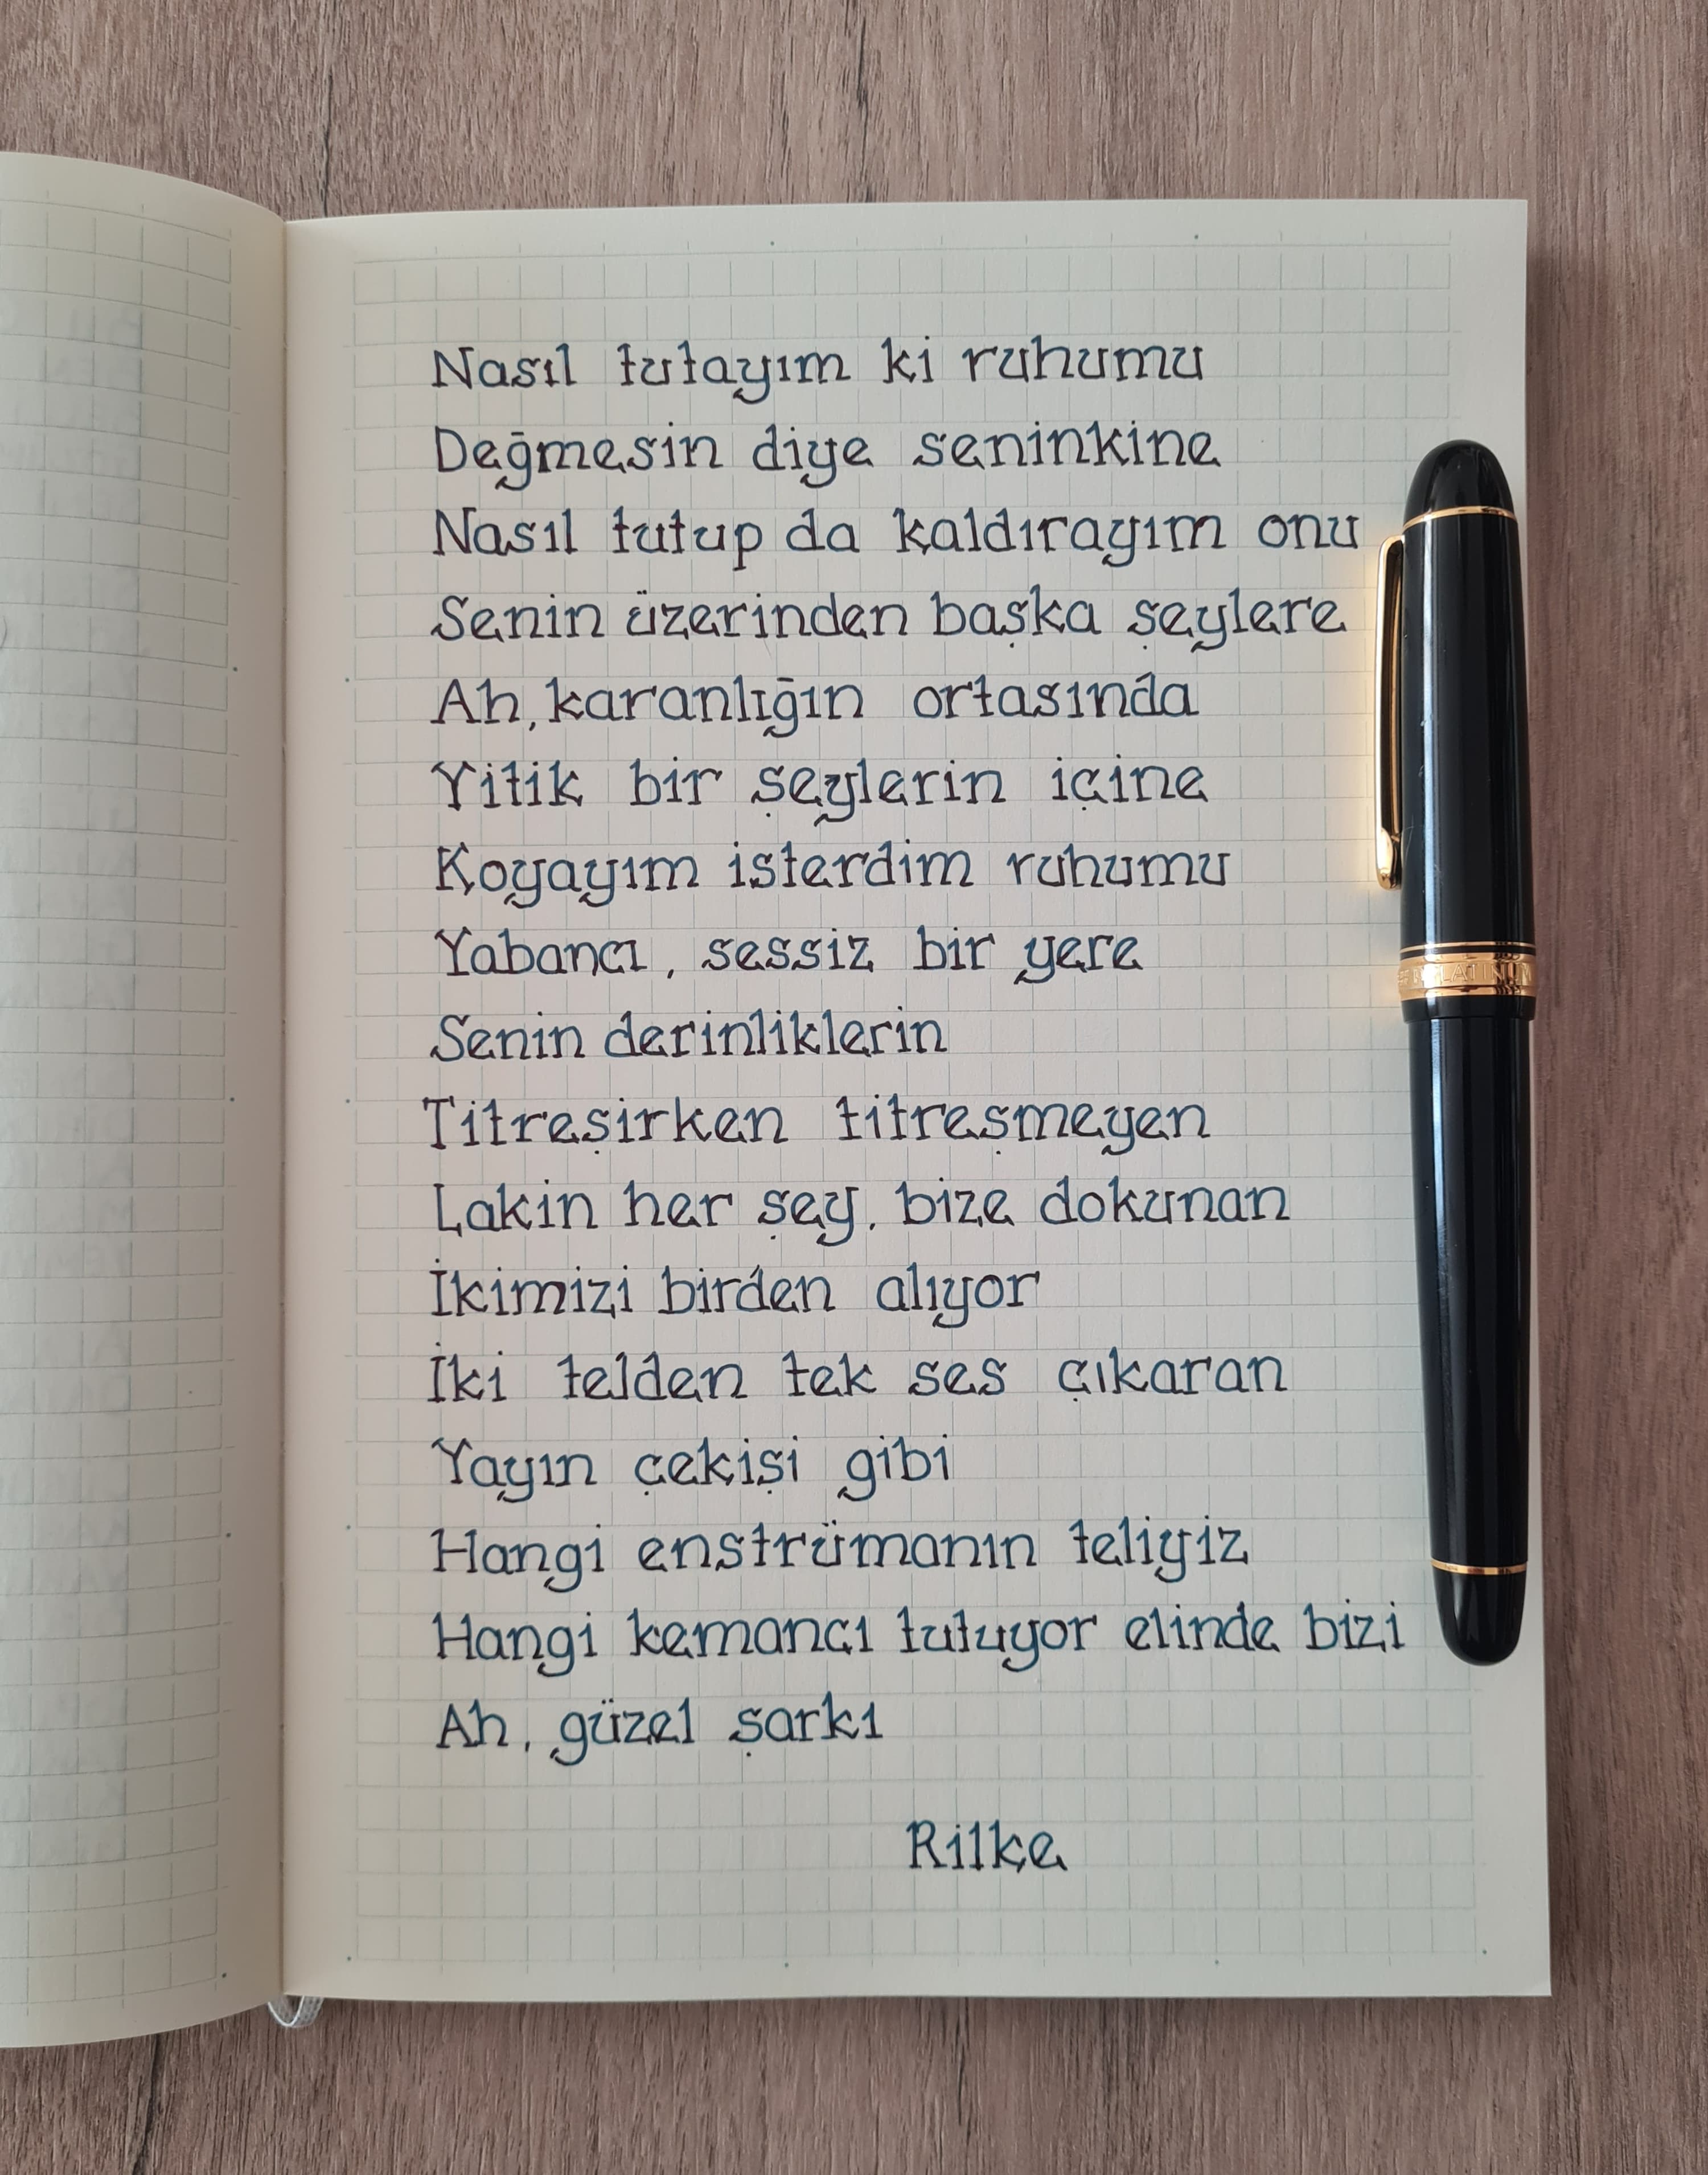 Nasıl tutayım ki ruhumu
Değmesin diye seninkine
Nasıl tutup da kaldırayım onu
Senin üzerinden başka şeylere
Ah, karanlığın ortasında
Yitik bir şeylerin içine
Koyayım isterdim ruhumu
Yabancı, sessiz bir yere
Senin derinliklerin
Titreşirken titreşmeyen
Lakin her şey, bize dokunan
İkimizi birden alıyor
İki telden tek ses çıkaran
Yayın çekişi gibi
Hangi enstrümanın teliyiz
Hangi kemancı tutuyor elinde bizi
Ah, güzel şarkı
Rilke
PLATINUM